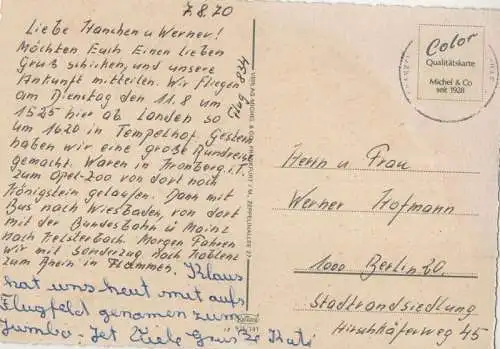 7.8.70
Liebe Hanchen u Werner!
Möchten Euch Einen lieben
Gruß schicken, und unsere
Ankunft mitteilen. Wir Fliegen
am Dienstag den 11.8 um
1525 hier ab Landen so
um 1620 in Tempelhof. Gestern
haben wir eine große Rundreise
gemacht. Waren in Kronberg i.T.
zum Opel-Zoo von dort nach
Königstein gelaufen. Dann mit
Bus nach Wiesbaden, von dort
mit der Bundesbahn ü Mainz
nach Kelsterbach. Morgen Fahren
wir mit Sonderzug nach Koblenz
zum Rhein in Flammen. Klaus
hat uns heut mit aufs
Flugfeld genomen zum
Jumbo-Jet Viele Grüsse Kati
Flug 834
VERLAG MICHEL & CO., FRANKFURT/M. ZEPPELINALLEE 27
Color
Qualitätskarte
Michel & Co
seit 1928
Herrn u Frau
Werner Hofmann
1000 Berlin 20
Stadtrandsiedlung
Hirschkäferweg 45